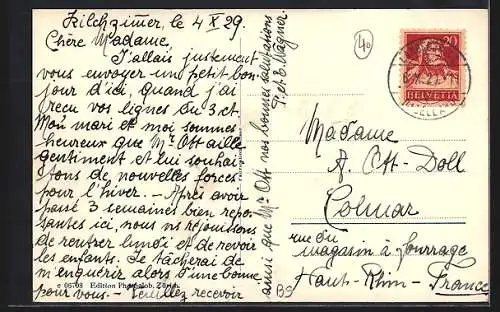 Kilchzimer, le 4 X 29.
Chère Madame,
J'allais justement
vous envoyer un petit bon-
jour d'ici, quand j'ai
reçu vos lignes du 3 ct.
Mon mari et moi sommes
heureux que Mr Ott aille
gentiment et lui souhai-
tons de nouvelles forces
pour l'hiver. - Après avoir
passé 3 semaines bien repo-
santes ici, nous ns réjouissons
de rentrer lundi et de revoir
les enfants. Je tâcherai de
m'enquérir alors d'une bonne
pour vous. - Veuillez recevoir
ainsi que Mr Ott nos bonnes salutations
P. et E. Wagner.
40
20
HELVETIA
Madame
A. Ott-Doll
Colmar
rue du
magasin à fourrage
Haut-Rhin - France
B9
c 06708 Edition Photoglob, Zürich